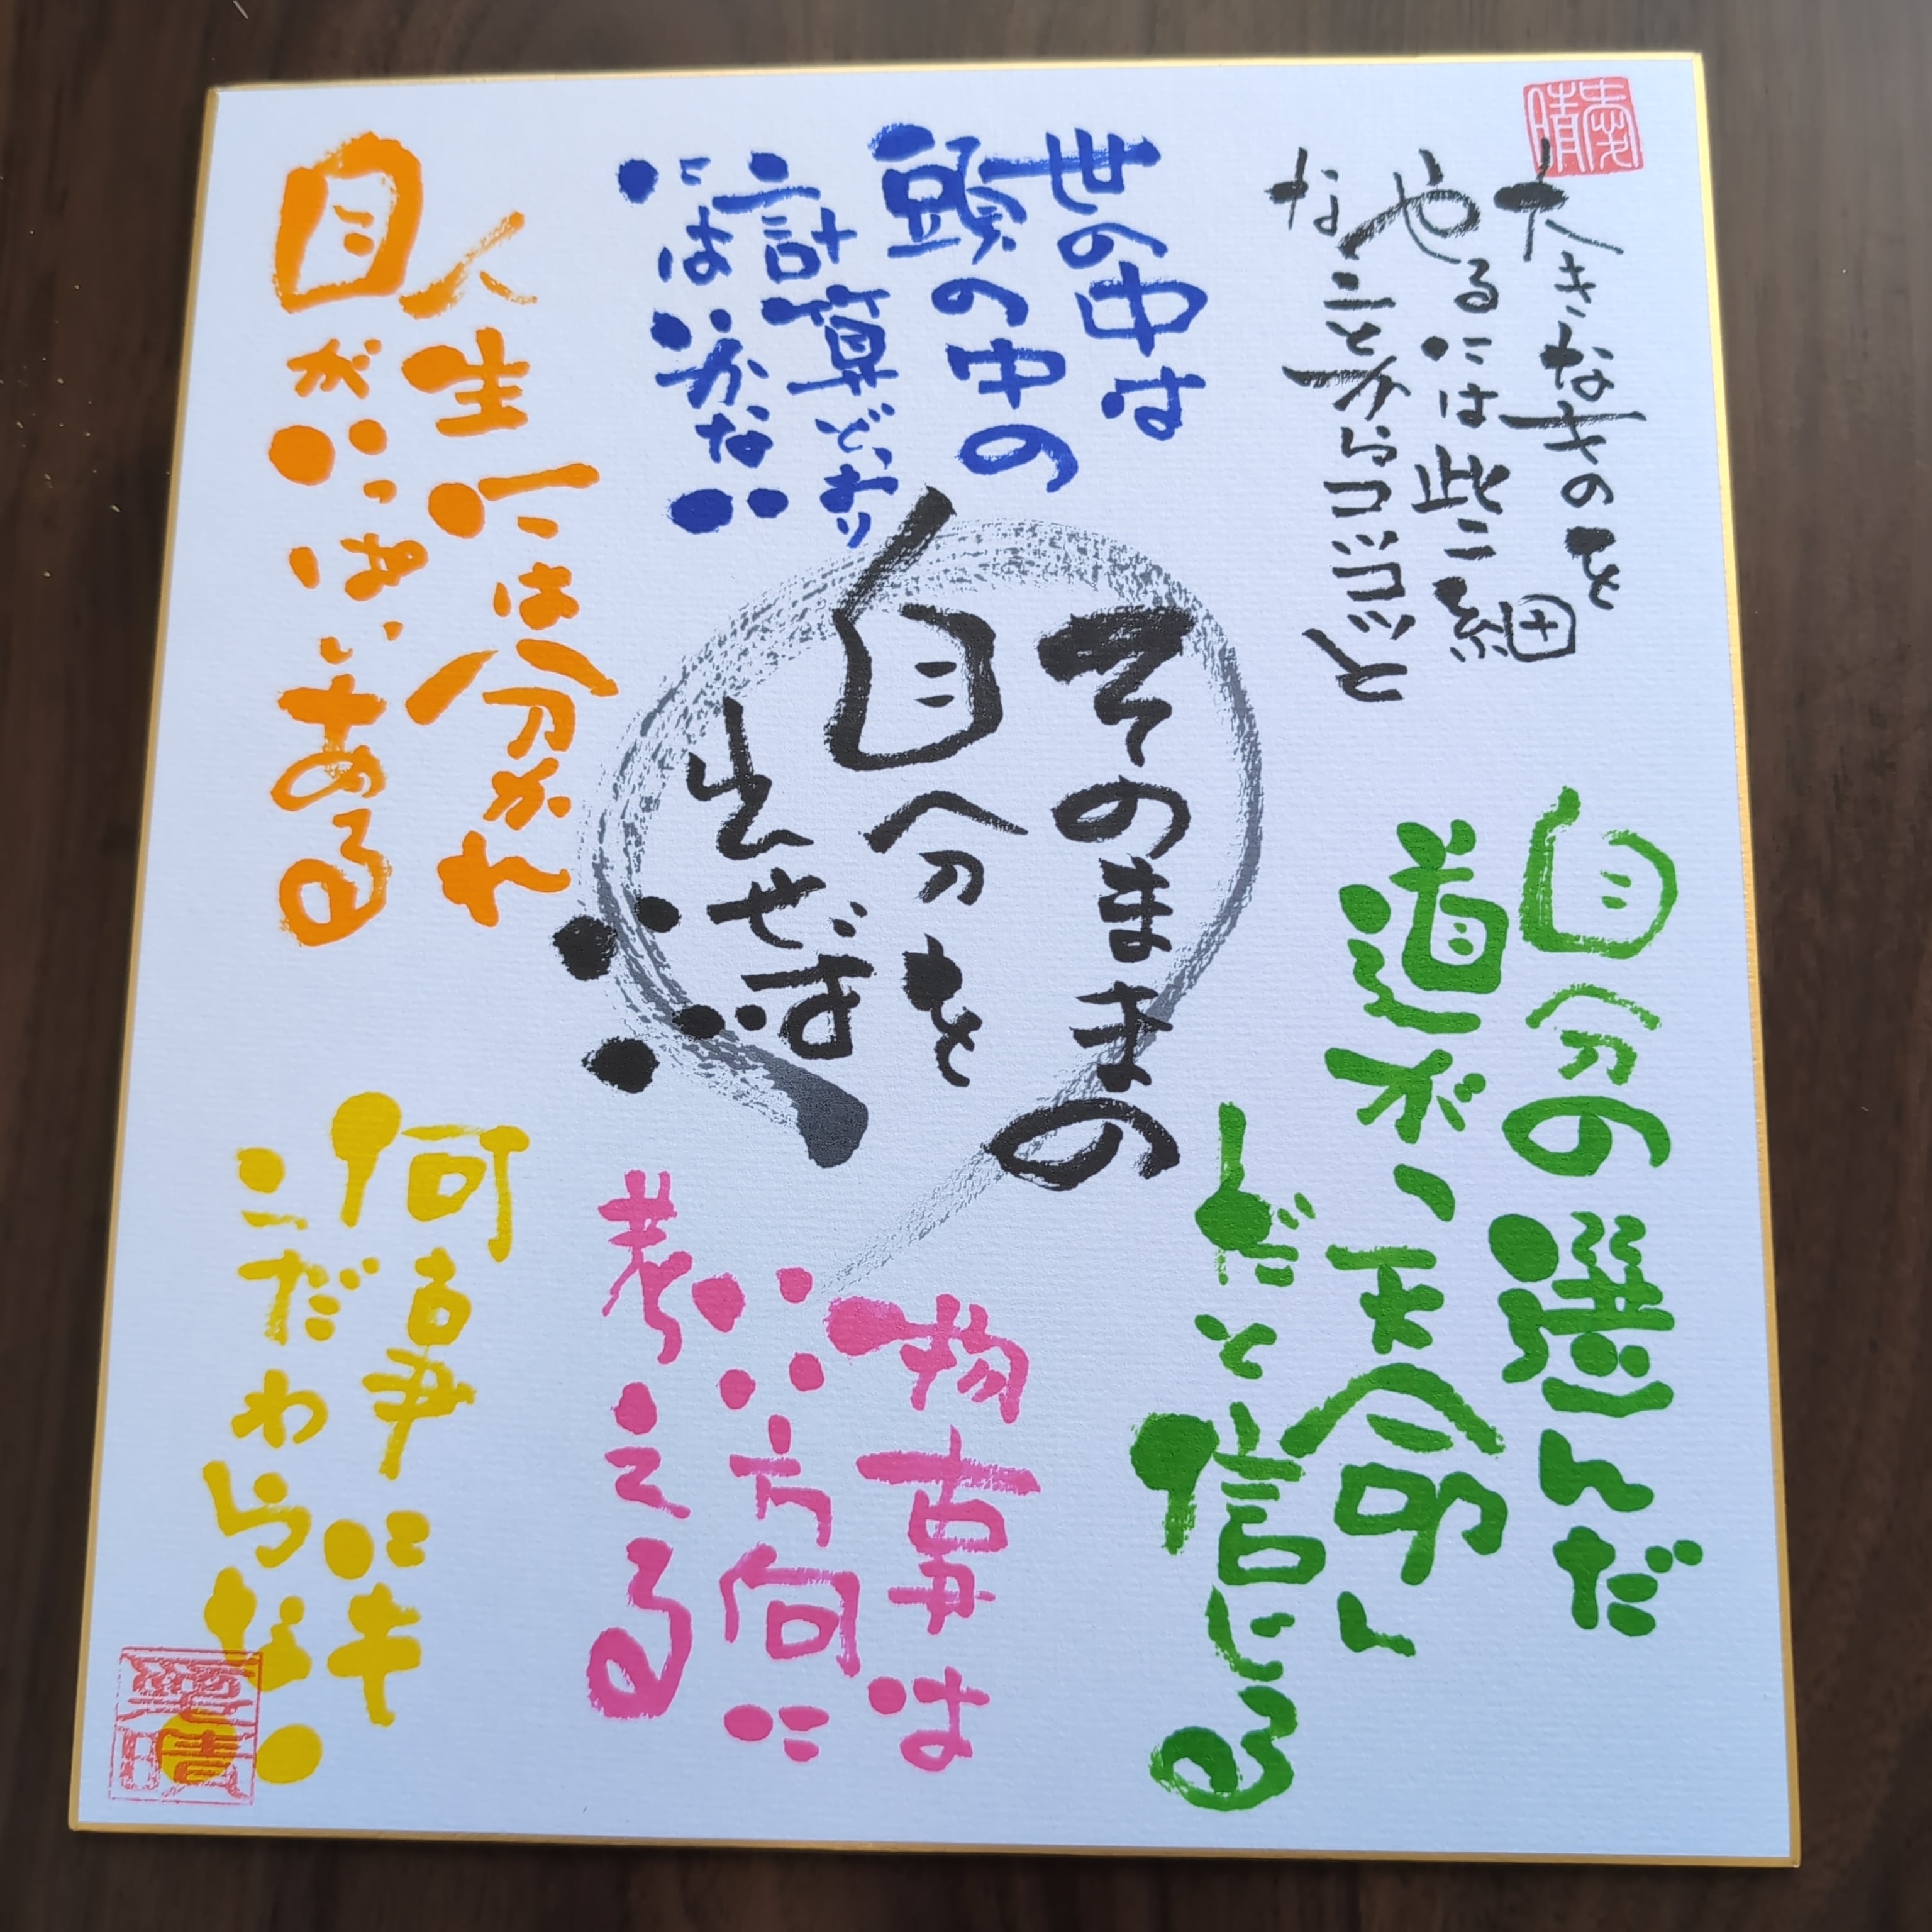 大きなものを
やるには些細
なことからコツコツと
世の中は
頭の中の
計算どおり
にはいかない
人生には分かれ
目がいっぱいある
そのままの
自分を
出せばいい
自分の選んだ
道が、天命
だと信じる
物事は
いい方向に
考える
何事にも
こだわらない